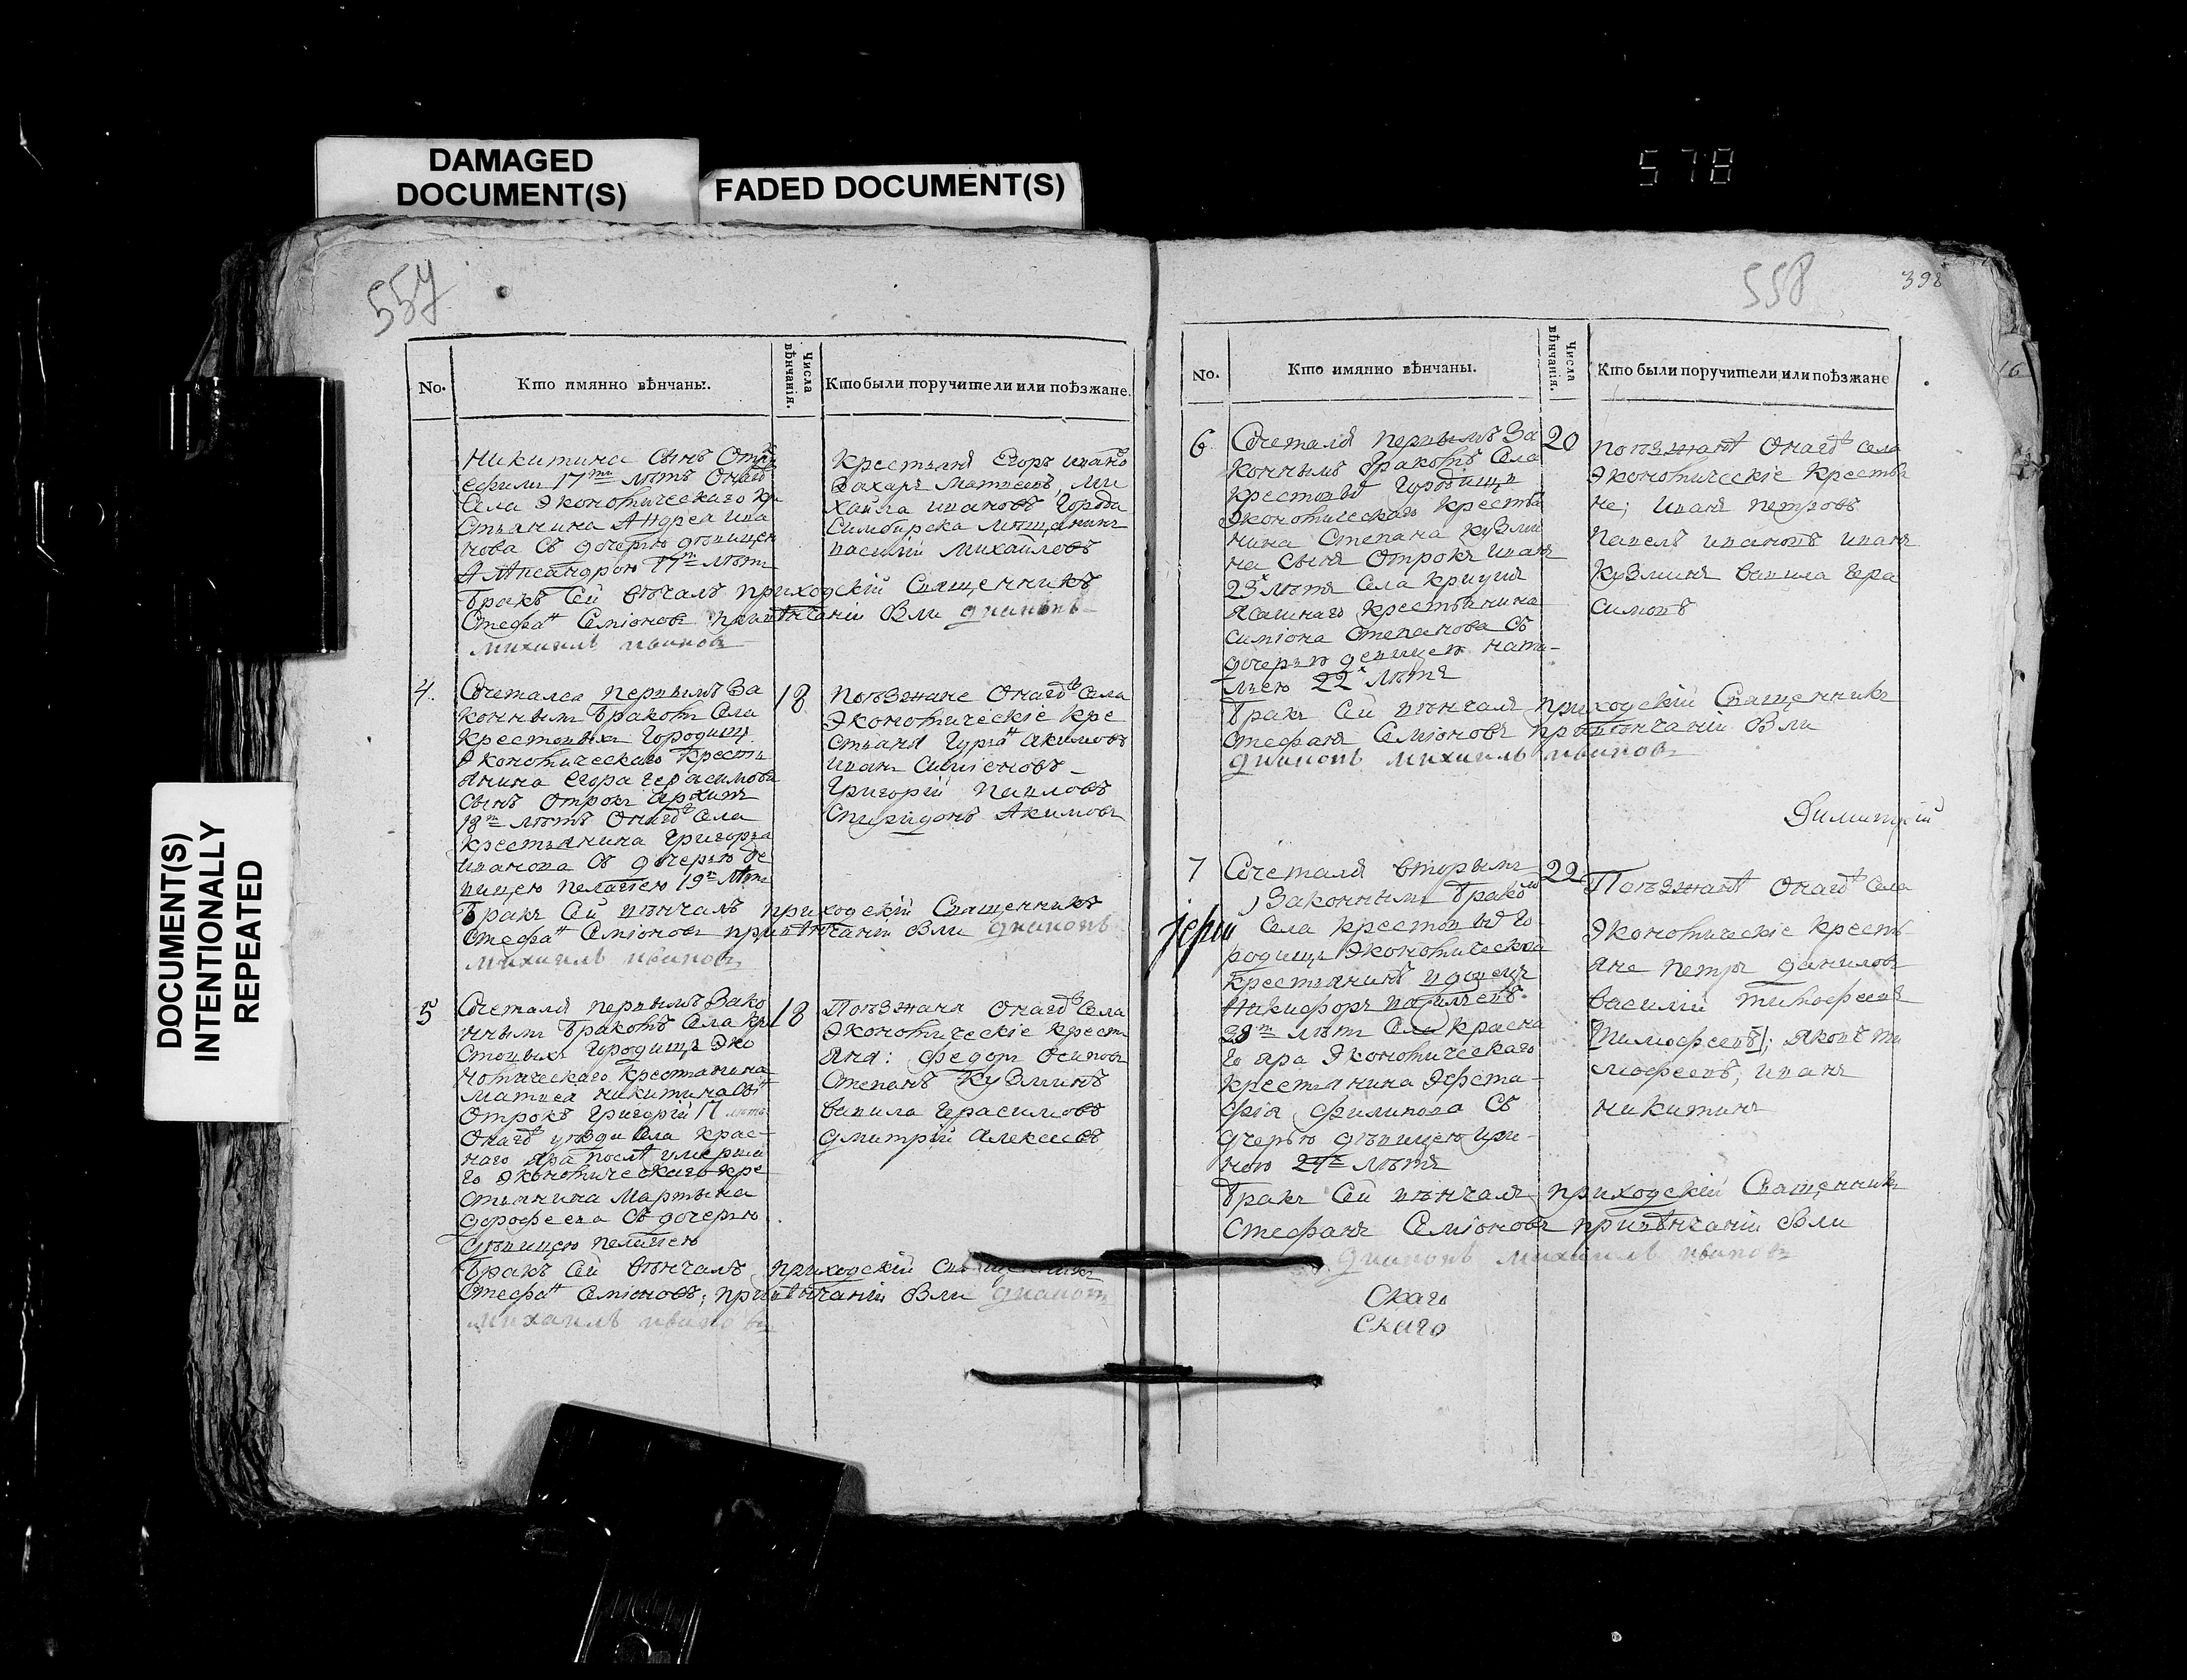 DAMAGED
DOCUMENT(S)
FADED DOCUMENT(S)
DOCUMENT(S)
INTENTIONALLY
REPEATED
578
557
No.
Кто имянно вѣнчаны.
Числа вѣнчанія.
Кто были поручители или поѣзжане.
Никитина сынъ Отрокъ
17ти лѣтъ Онагѡ
Села Экономическаго кре
стьянина Андрея ива
нова съ дочерью дѣвицею
17ти лѣтъ
бракъ сей вѣчалъ приходскій Священникъ
Стефанъ Семіоновъ привѣнчаніи были диаконъ
михаилъ ивановъ
Крестьяня Егоръ ивановъ
Захаръ Матвеевъ, ми
хайла ивановъ Города
Симбирска мѣщанинъ
василий михайловъ
4.
Сочетался первымъ За
коннымъ бракомъ Села
Крестовыхъ Городищъ
Экономическаго крестъ
янина Егора Герасимова
сынъ отрокъ Архипъ
18ти лѣтъ Онагѡ Села
крестьянина Григорья
иванова съ дочерью де
вицею пелагіею 19ти лѣтъ
бракъ сей вѣнчалъ приходскій Священникъ
Стефанъ Семіоновъ привѣнчаніи были диаконъ
михаилъ ивановъ
18
Поѣзжане Онагѡ Села
Экономическіе кре
стьяня Гурӥ Акимовъ
иванъ Симіоновъ
Григорій Павловъ
Спиридонъ Акимовъ
5
Сочетался первымъ Зако
ннымъ бракомъ Села кре
стовыхъ Городищъ Эко
номическаго крестьянина
Матвея никитина сынъ
Отрокъ Григорій 17 лѣтъ
Онагѡ уѣзда Села Крас
наго Яра послѣ умерша
го Экономическаго кре
стьянина Мартына
дорофеева съ дочерью
дѣвицею пелагіею
бракъ сей вѣнчалъ приходскій священникъ
Стефанъ Семіоновъ, привѣнчаніи были диаконъ
михаилъ ивановъ
18
Поѣзжаня Онагѡ Села
Экономическіе крестъ
яня: федоръ осиповъ
Степанъ Кузминъ
вавила Герасимовъ
дмитрій Алексеевъ
558
398
16
No.
Кто имянно вѣнчаны.
Числа вѣнчанія.
Кто были поручители или поѣзжане
6
Сочетался первымъ За
коннымъ бракомъ Села
Крестовы Городищъ
Экономическаго крестья
нина Степана Кузми
на сынъ Отрокъ иванъ
23х лѣтъ Села
ясашнаго крестьянина
симіона Степанова съ
дочерью девицею ната
лиею 22х лѣтъ
бракъ сей вѣнчалъ приходскій Священникъ
Стефанъ Семіоновъ привѣнчаніи были
диаконъ михаилъ ивановъ
20
поѣзжанѣ Онагѡ села
Экономическіе Крестья
не; иванъ петровъ
павелъ ивановъ иванъ
Кузминъ вавила Гера
симовъ
Димитрій
7
Сочетался вторымъ
Законнымъ бракомъ
Села крестовы го
родищъ Экономическиӥ
крестьянинъ вдовецъ
Никифоръ
38ти лѣтъ Села красна
го яра Экономическаго
крестьянина Эвста
фія филипова съ
дочерью дѣвицею ири
ною 24х лѣтъ
бракъ сей вѣнчалъ приходскій Священникъ
Стефанъ Семіоновъ привѣнчаніи были
диаконъ михаилъ ивановъ
іереи
22
Поѣзжанѣ Онагѡ Села
Экономическіе кресть
яне петръ даниловъ
василий тимофеевъ
[тимофеевъ]; яковъ ти
мофеевъ, иванъ
никитинъ
Скаго
Скаго